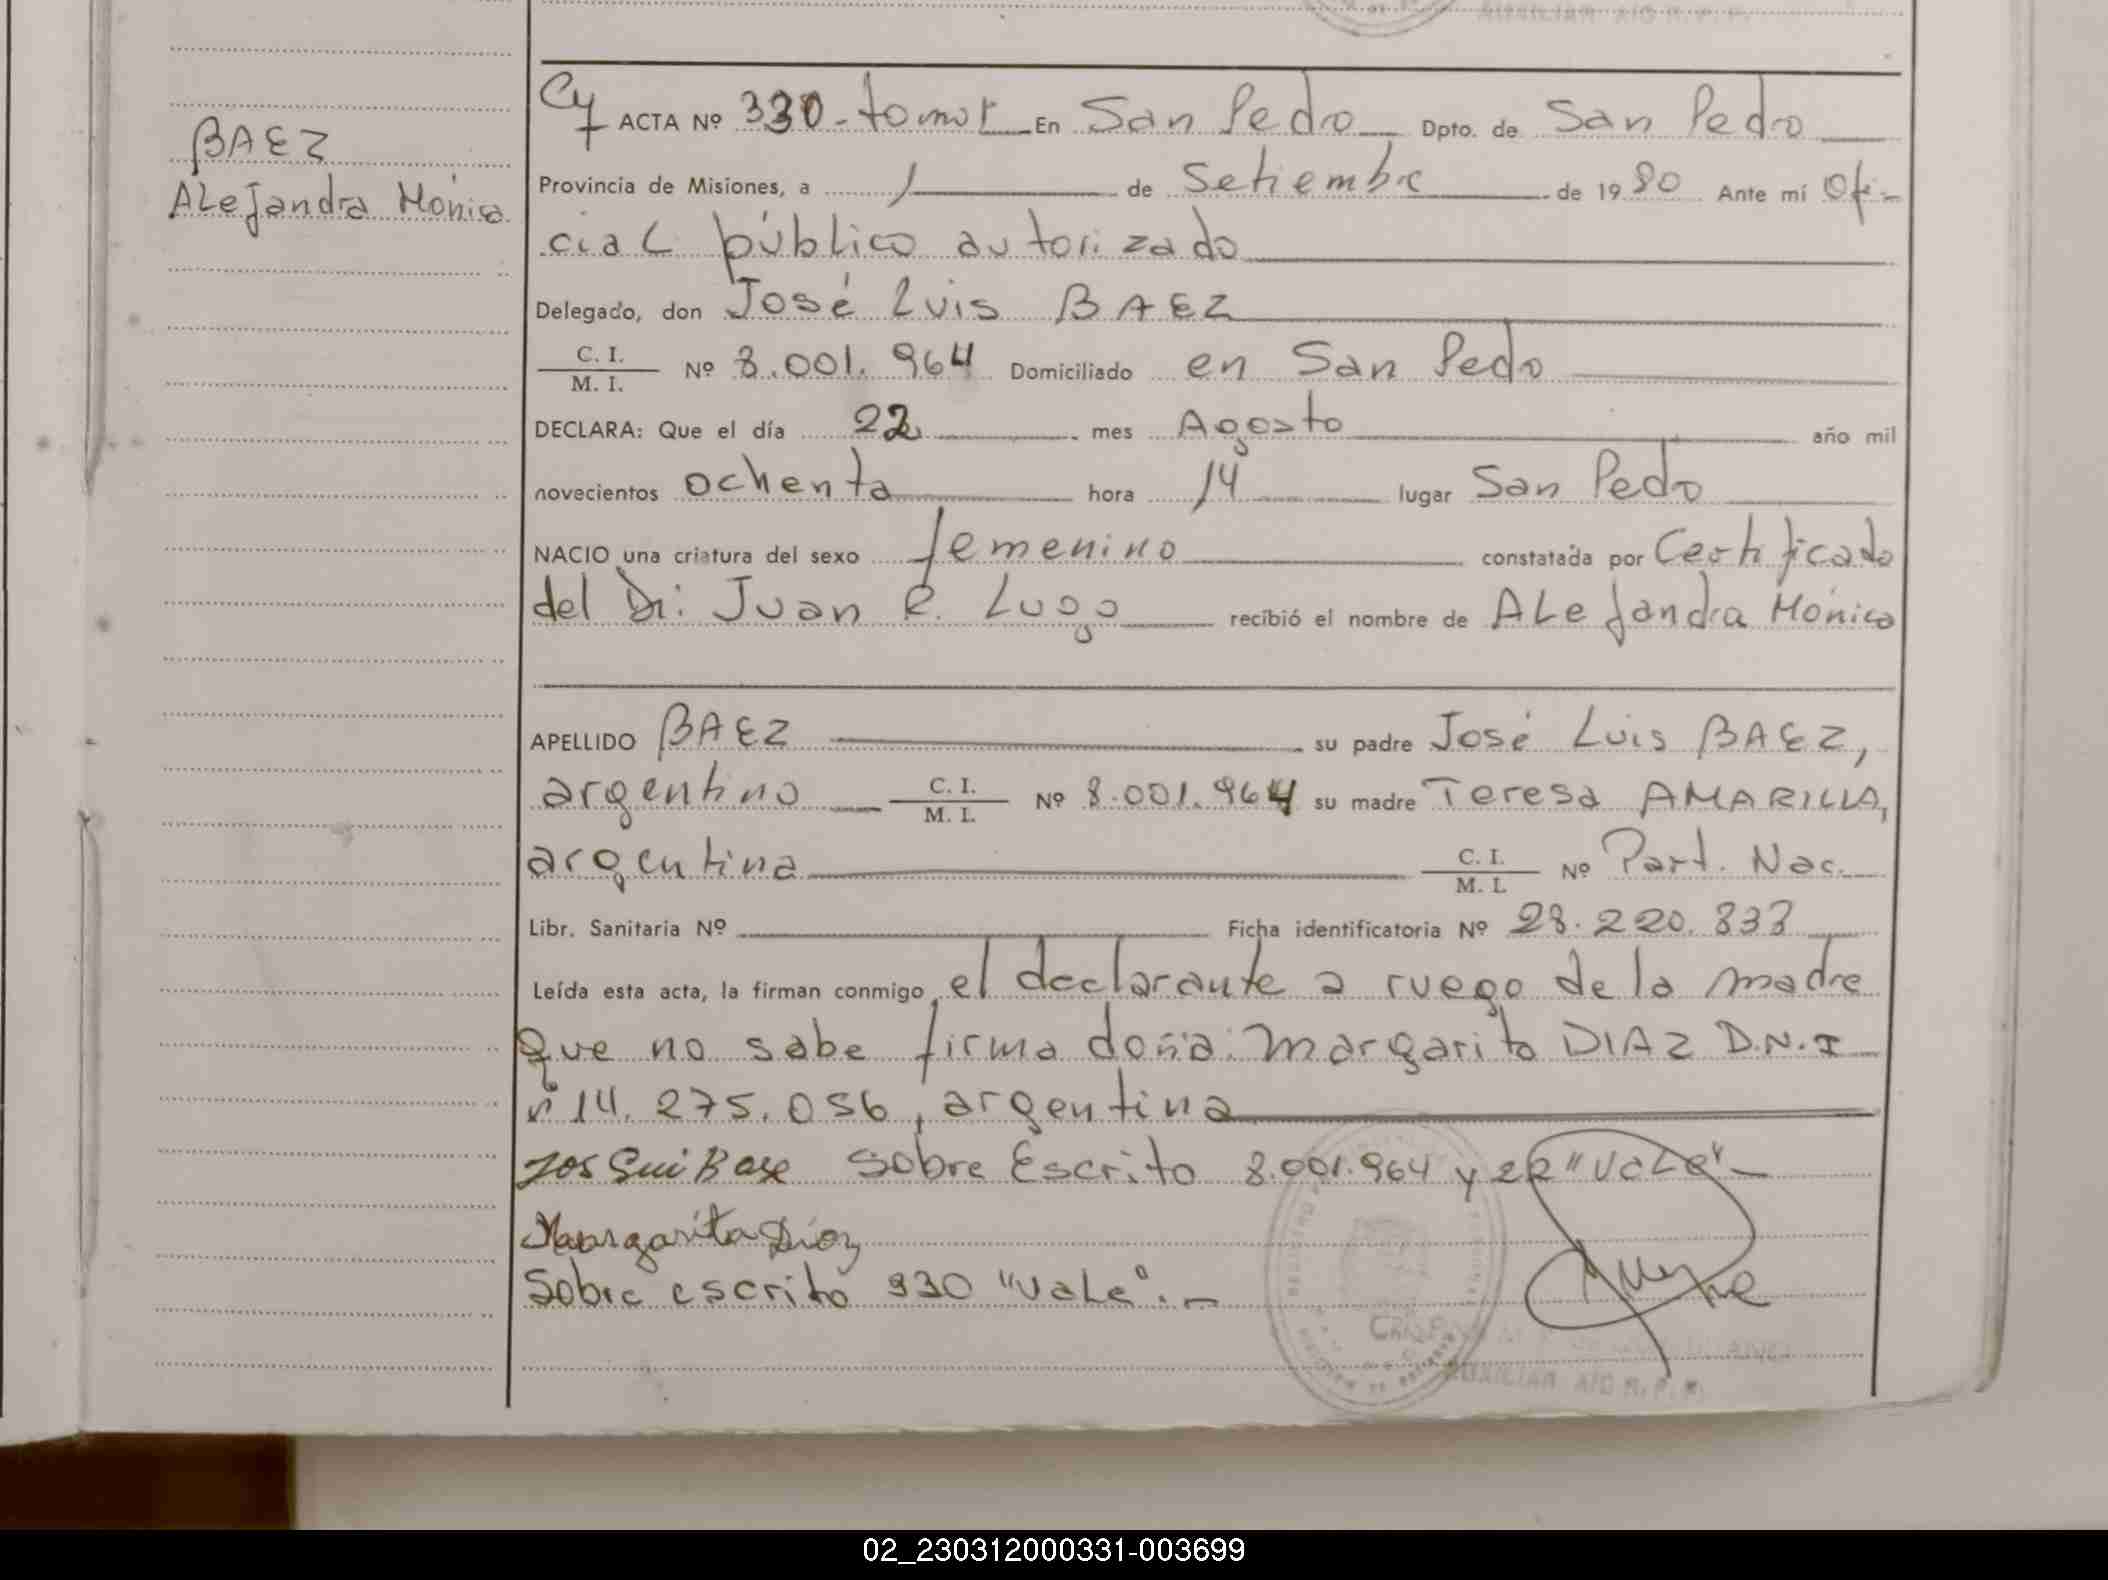 AUXILIAR A/C R. P. P.
BAEZ
ALejandra Mónica
Cy ACTA Nº 330 - tomo I En San Pedro Dpto. de San Pedro
Provincia de Misiones, a 1 de Setiembre de 1980 Ante mí Ofi-
ciaL público autorizado
Delegado, don José Luis BAEZ
C. I.
M. I.
Nº 8.001.964 Domiciliado en San Pedro
DECLARA: Que el día 22 mes Agosto año mil
novecientos ochenta hora 14 lugar San Pedro
NACIO una criatura del sexo femenino constatada por Certificado
del Dr: Juan R. Lugo recibió el nombre de ALejandra Mónica
APELLIDO BAEZ su padre José Luis BAEZ,
argentino C. I.
M. I.
Nº 8.001.964 su madre Teresa AMARILLA,
argentina C. I.
M. I.
Nº Part. Nac.
Libr. Sanitaria Nº Ficha identificatoria Nº 28.220.833
Leída esta acta, la firman conmigo, el declarante a ruego de la madre
que no sabe firma doña: Margarita DIAZ D.N.I
nº 14.275.056, argentina
Sobre Escrito 8.001.964 y 22 "VaLe"-
Margarita Díaz
Sobre escrito 330 "VaLe".-
AUXILIAR A/C R. P. P.
02_230312000331-003699